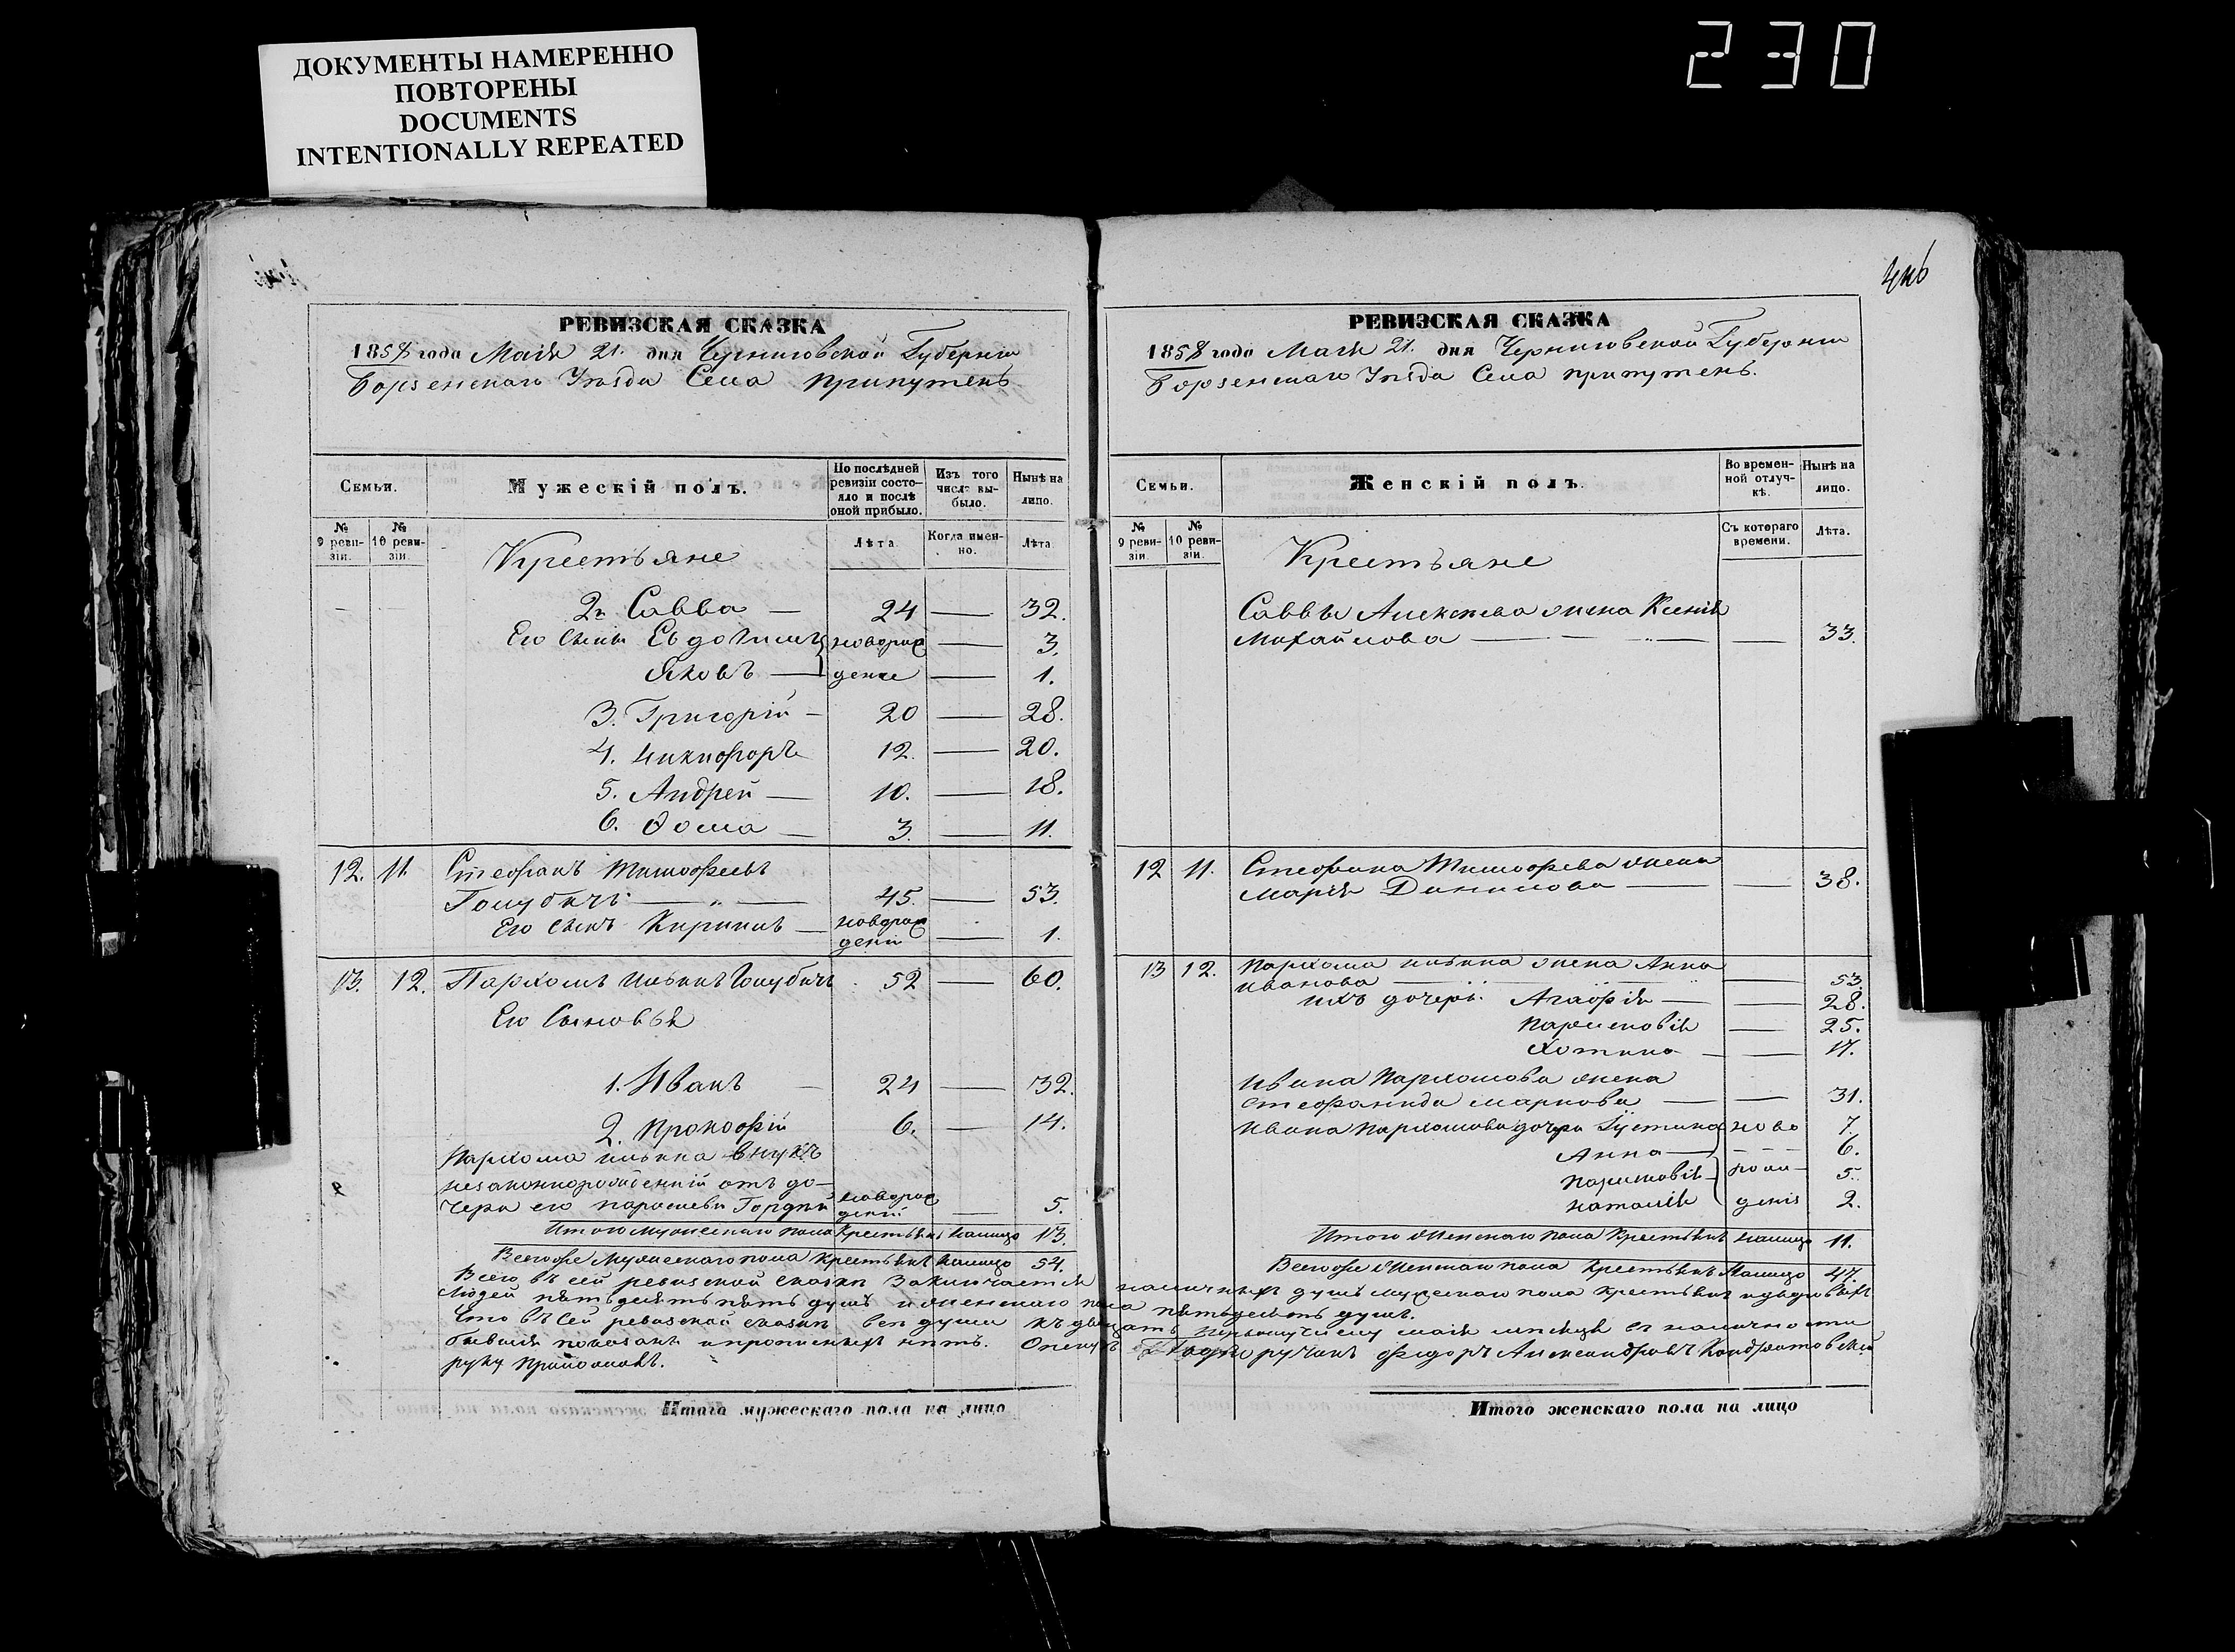 ДОКУМЕНТЫ НАМЕРЕННО
ПОВТОРЕНЫ
DOCUMENTS
INTENTIONALLY REPEATED
230
РЕВИЗСКАЯ СКАЗКА
1858 года Маія 21. дня Черниговской Губерніи
Борзенскаго Уѣзда Села Припутенъ
Семьи.
Мужескій полъ.
По послѣдней ревизіи состояло и послѣ оной прибыло.
Изъ того числа выбыло.
Нынѣ на лицо.
№ 9 ревизіи.
№ 10 ревизіи.
Крестьяне
Лѣта
Когда именно.
Лѣта
2й Савва — 24 — 32.
Его сыны Евдокимъ новорож — 3.
Яковъ — дение — 1.
3. Григорій — 20 — 28.
4. Никифоръ 12. — 20.
5. Андрей — 10. — 18.
6. Ѳома — 3. — 11.
12. 11. Стефанъ Тимофеевъ
Голубичъ — 45. — 53.
Его сынъ Кирилъ — новорож
деній — 1.
13. 12. Пархомъ Ильинъ Голубичъ 52 — 60.
Его Сыновья
1. Иванъ — 24 — 32.
2. Прокофій 6. — 14.
Пархома Ильина внукъ
незаконнорожденній отъ до-
чери его Параскевы Гордѣй новорож
деній — 5.
Итого мужескаго пола крестьянъ налицо 13.
Всегоже мужескаго пола крестьянъ налицо 54.
РЕВИЗСКАЯ СКАЗКА
1858 года Маія 21. дня Черниговской Губерніи
Борзенскаго Уѣзда Села Припутенъ.
Семьи.
Женскій полъ.
Во временной отлучкѣ.
Нынѣ на лицо.
№ 9 ревизіи.
№ 10 ревизіи.
Крестьяне
Съ котораго времени.
Лѣта.
Саввы Алексѣева жена Ксенія
Михайлова — — 33.
12 11. Стефана Тимофеева жена
Марія Данилова — — 38.
13 12. Пархома Ильина жена Анна
Иванова — — 53.
ихъ дочери: Агафія — — 28.
Парасковія — 25.
Хотина — — 17.
Ивана Пархомова жена
Стефанида Маркова — — 31.
Ивана Пархомова дочери Іустина ново 7.
Анна — 6.
Парасковія рож- 5.
Наталія денія 2.
Итого женскаго пола крестьянъ налицо 11.
Всегоже женскаго пола крестьянъ налицо 47.
Всего въ сей ревизской сказкѣ заключается наличныхъ душъ мужескаго пола крестьянъ и дворовыхъ
людей пятьдесятъ пять душъ и женскаго пола пятьдесятъ душъ.
Что въ сей ревизской сказкѣ все души къ двадцать первому числу маія мѣсяца въ наличности
бывшія показаны и прописныхъ нѣтъ. Опекунъ Подпоручикъ Федоръ Александровъ Кондратовскій
руку приложилъ.
Итого мужескаго пола на лицо
Итого женскаго пола на лицо